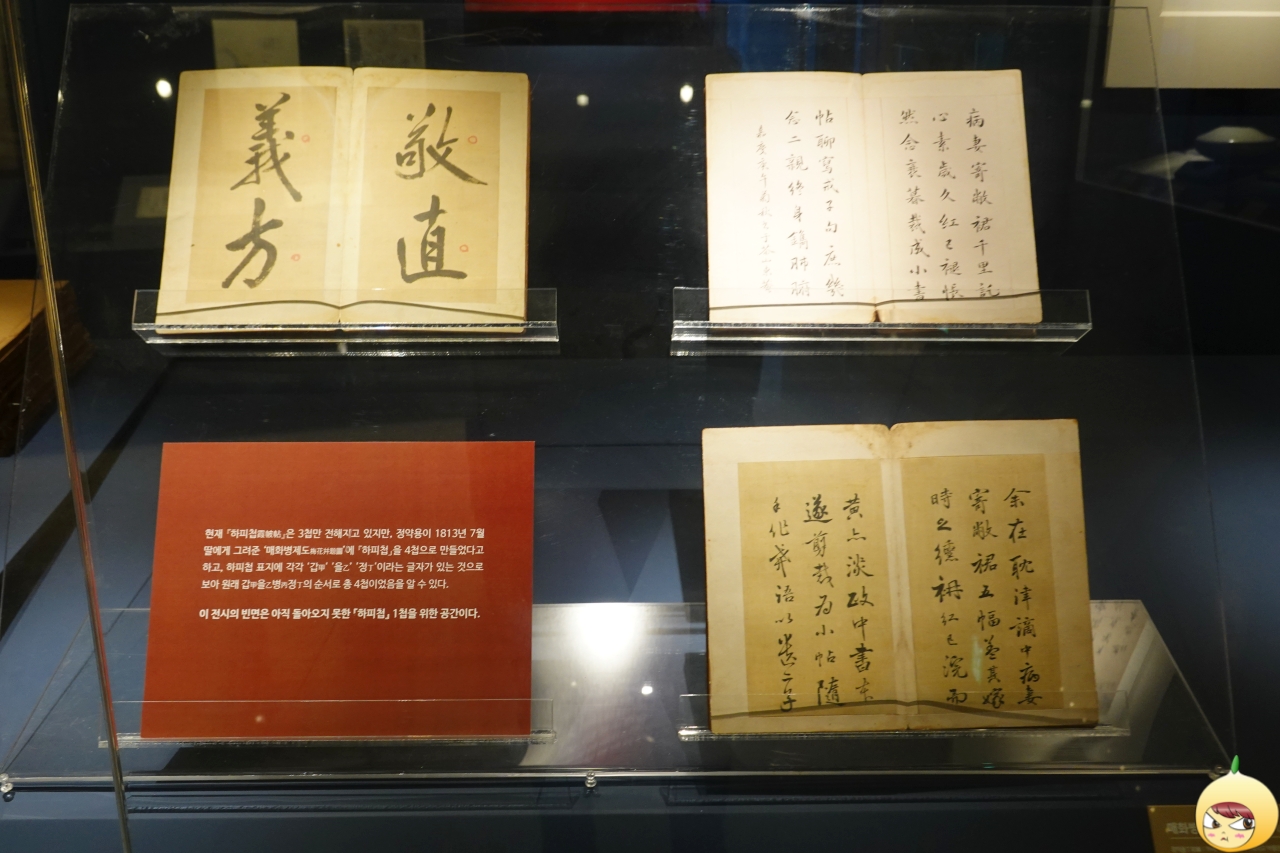 敬直
義方
病妻寄敝裙千里託
心素歲久紅已褪悵
然念衰暮裁成小書
帖聊寫戒子句庶幾
念二親終身鐫肺腑
현재 「하피첩霞帔帖」은 3첩만 전해지고 있지만, 정약용이 1813년 7월
딸에게 그려준 '매화병제도梅花屛題圖'에 「하피첩」을 4첩으로 만들었다고
하고, 하피첩 표지에 각각 '갑甲' '을乙' '정丁'이라는 글자가 있는 것으로
보아 원래 갑甲을乙병丙정丁의 순서로 총 4첩이었음을 알 수 있다.
이 전시의 빈면은 아직 돌아오지 못한 「하피첩」 1첩을 위한 공간이다.
余在耽津謫中病妻
寄敝裙五幅蓋其嫁
時之纁衻紅已浣而
黃亦淡政中書本
遂剪裁爲小帖隨
手作戒語以遺二子